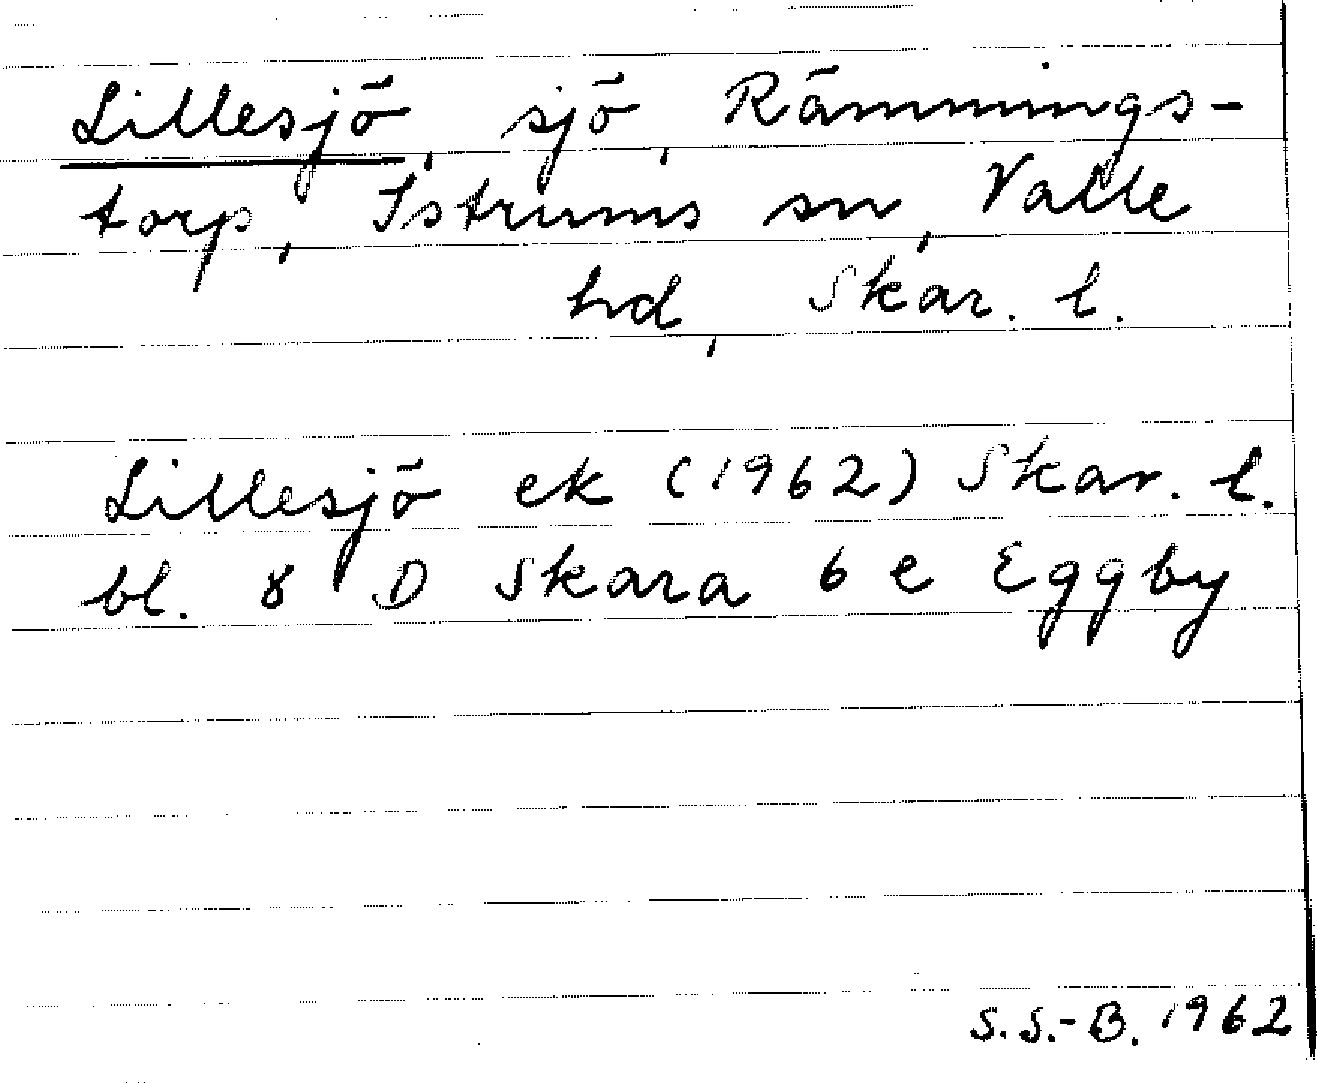 Lillesjö, sjö, Rämmings-
torp, Istrums sn, Valle
hd, Skar. l.
Lillesjö ek (1962) Skar. l.
bl. 8 D Skara 6 e Eggby
S.S.-B. 1962